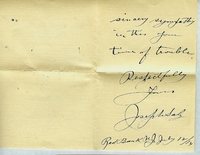 sincere sympathy
in this your
time of trouble
Respectfully
Yours
Joseph
Red Bank N.J. July 12/